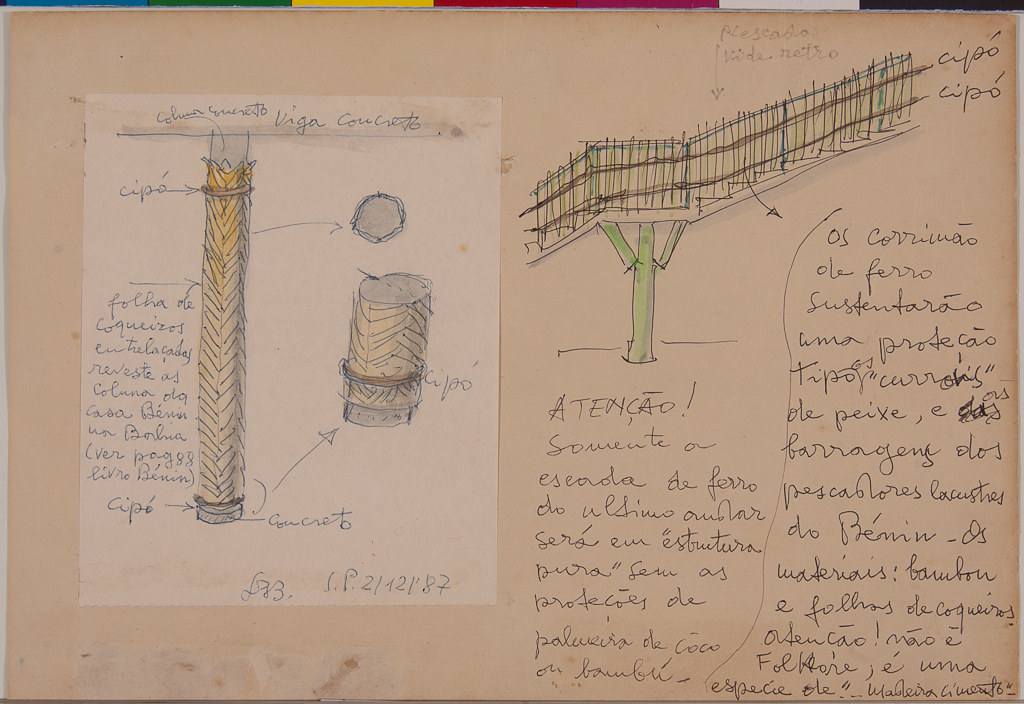 coluna concreto
Viga concreto
cipó
folha de
coqueiros
entrelaçadas
reveste as
coluna da
casa Bénin
na Bahia
(ver pag 88
livro Bénin)
cipó
concreto
cipó
S.P. 2/12/'87
vide retro
cipó
cipó
ATENÇÃO!
Somente a
escada de ferro
do ultimo andar
será em "estrutura
pura" sem as
proteções de
palmeira de côco
ou bambú-
Os corrimão
de ferro
sustentarão
uma proteção
tipo os "currais"
de peixe, e as
barragens dos
pescadores lacustres
do Bénin - Os
materiais: bambou
e folhas de coqueiros.
atenção! não é
Folklore, é uma
especie de "- Madeira cimento"-